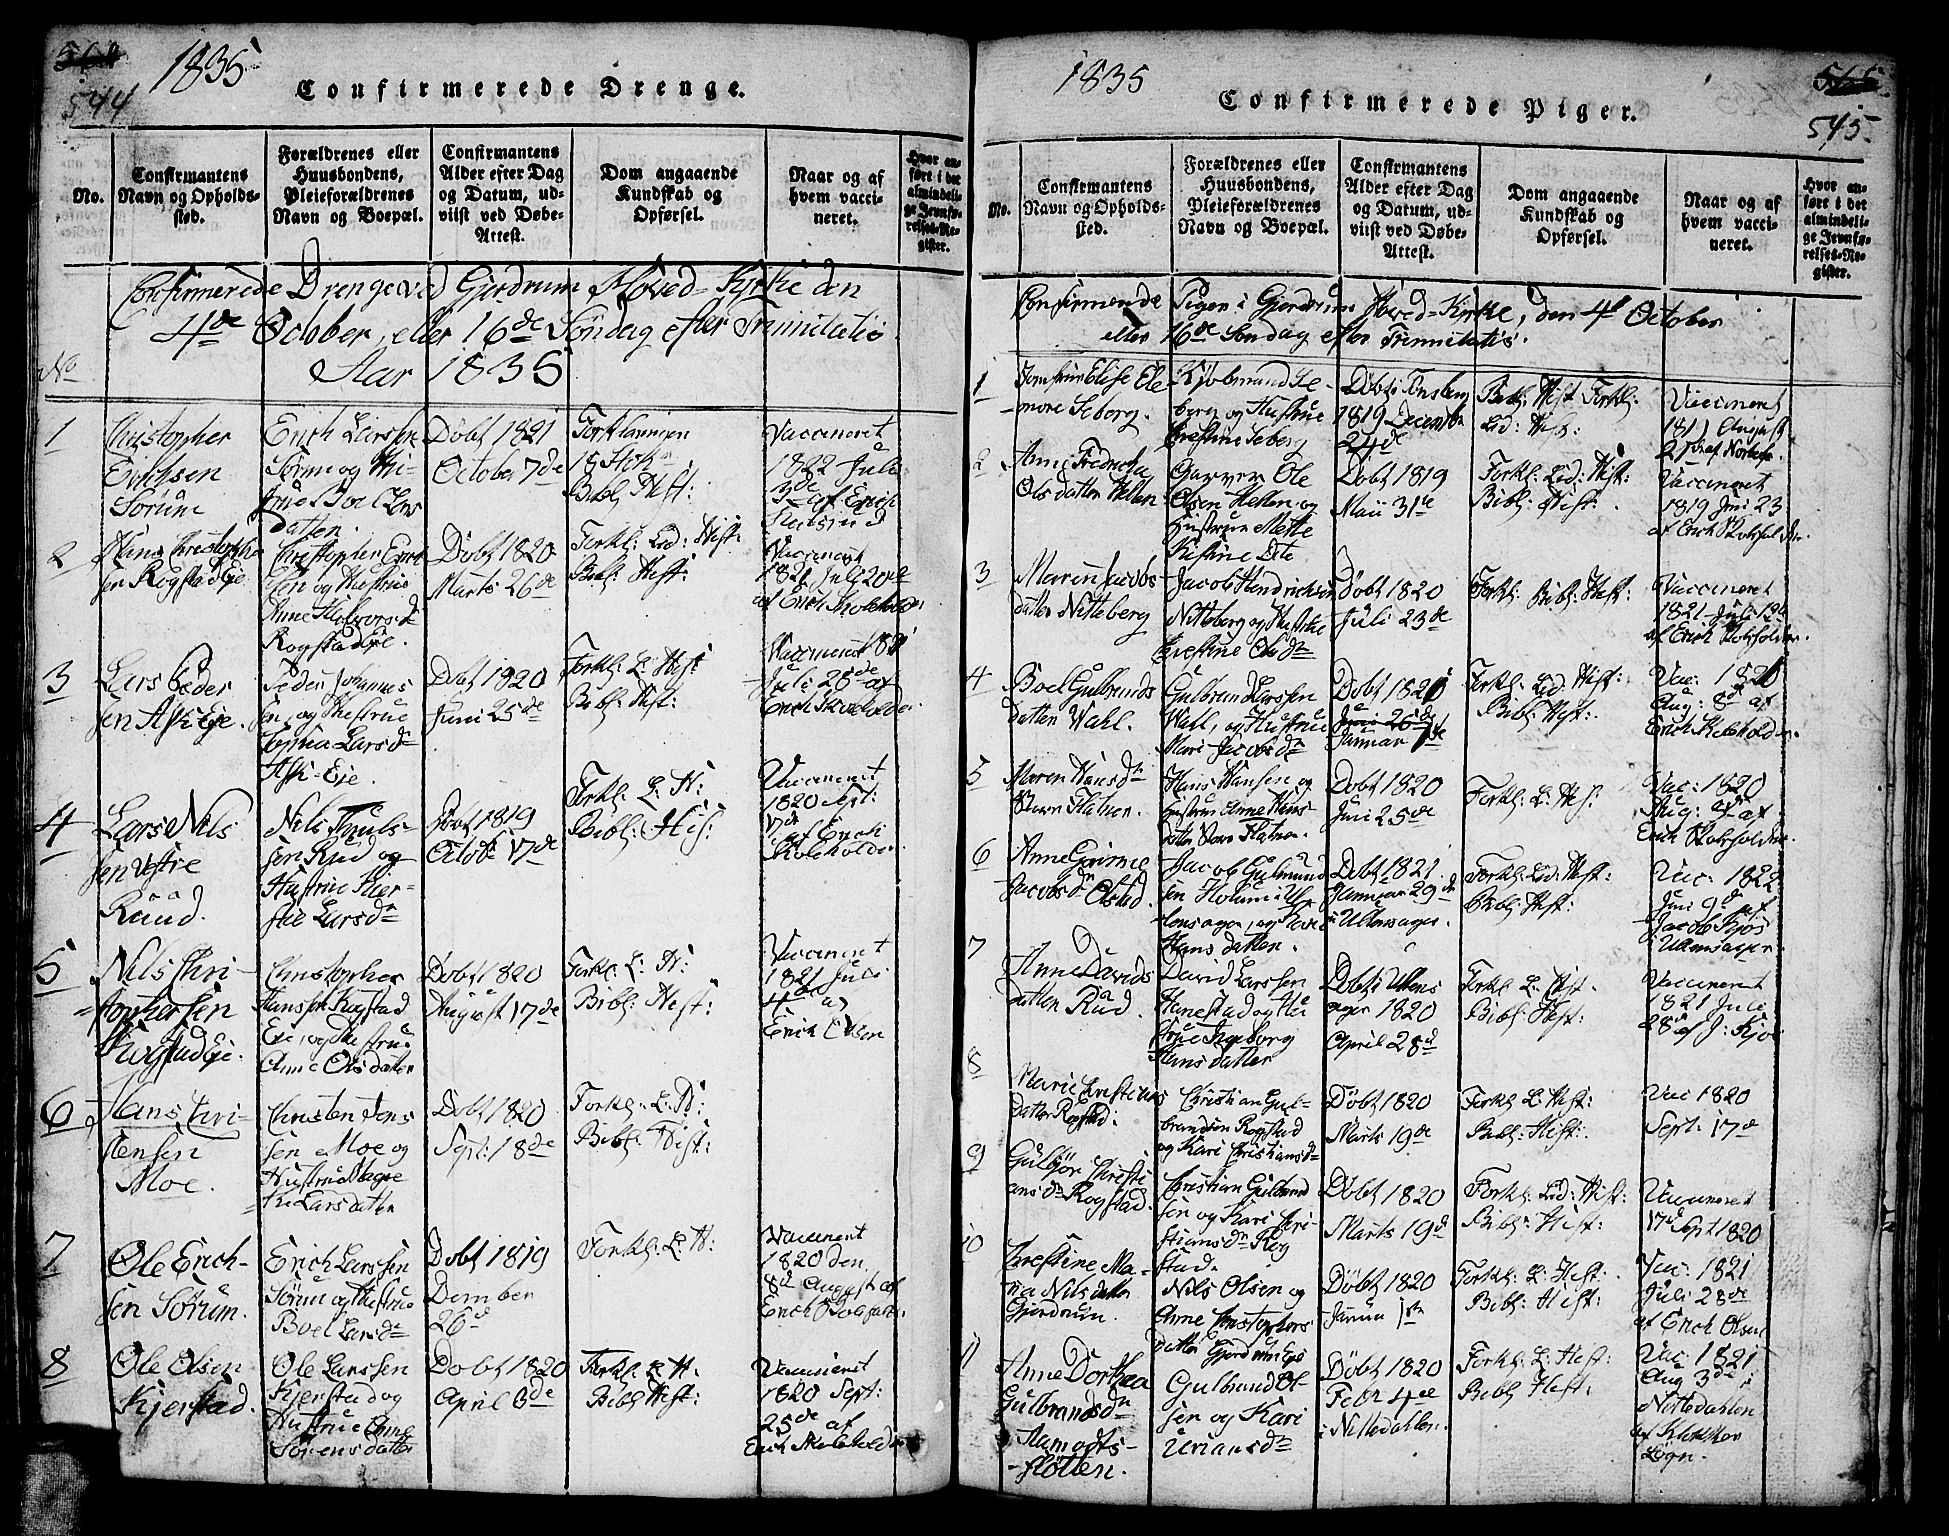 564
544
1835
Confirmerede Drenge.
No.
Confirmantens
Navn og Opholds-
sted.
Forældrenes eller
Huusbondens,
Pleieforældrenes
Navn og Boepæl.
Confirmantens
Alder efter Dag
og Datum, ud-
viist ved Døbe-
Attest.
Dom angaaende
Kundskab og
Opførsel.
Naar og af
hvem vacci-
neret.
Hvor an-
ført i det
almindeli-
ge Jevnfø-
relses-Re-
gister.
Confirmerede Drenge ved Gjerdrum Hoved-Kirke den
4de October, eller 16de Søndag efter Trinnitatis
Aar 1835
No
1
Christopher
Erichsen
Sörum
Erich Larssen
Sörum og Hu-
strue Boel Lars
datter.
Döbt 1821
October 7de
Forklaringen
Bibl: Hist:
Vaccineret
1822 Juli
3de af Erich
2
Rogstad Eje
Christopher
sen og Hustrue
Anne Halvorsd
Rogstad Eje.
Döbt 1820
Marts 26de
Forkl: Lid: Hist:
Bibl: Hist:
Vaccineret
1821 Juli 20de
af Erich Skoleholder
3
Lars Peder
sen Ask Eje.
Peder Johannes
sen, og Hustrue
Sophia Larsdn
Ask-Eje.
Döbt 1820
Juni 25de
Forkl: L: Hist:
Bibl: Hist:
Vaccineret 1821
Juli 28de af
Erich Skoleholder
4
Lars Nils
sen Vestre
Ruud.
Nils
sen Rud og
Hustrue
Larsdn
Döbt 1819
Octob 17de
Forkl: L: H:
Bibl: His:
Vaccineret
1820 Sept:
17de
af Erich
Skoleholder
5
Nils Chri-
stophersen
Rogstad Eje.
Christopher
Hansen Rogstad
Eie, og Hustrue
Anne Olsdatter
Döbt 1820
August 17de
Forkl: L: H:
Bibl: Hist:
Vaccineret
1821 Juli
4de af
Erich Olsen
6
Hans Chri-
stensen
Moe.
Christen Jens
sen Moe og
Hustrue Magre
the Larsdatter
Döbt 1820
Sept: 18de
Forkl: L: H:
Bibl: Hist:
7
Ole Erich-
sen Sörum.
Erich Larssen
Sörum og Hustrue
Boel Larsdn
Döbt 1819
Dember
26d
Forkl: L: H:
Vaccineret
1820 den
8d August af
Erich
8
Ole Olsen
Kjerstad.
Ole Larssen
Kjerstad og
Hustrue Anne
Sörensdatter
Döbt 1820
April 3de
Forkl: L: H:
Bibl: Hist:
Vaccineret
1820 Sept:
25de af
Erich Skoleholder
1835
Confirmerede Piger.
565
545.
No.
Confirmantens
Navn og Opholds-
sted.
Forældrenes eller
Huusbondens,
Pleieforældrenes
Navn og Boepæl.
Confirmantens
Alder efter Dag
og Datum, ud-
viist ved Døbe-
Attest.
Dom angaaende
Kundskab og
Opførsel.
Naar og af
hvem vacci-
neret.
Hvor an-
ført i det
almindeli-
ge Jevnfø-
relses-Re-
gister.
Confirmerede Piger i Gjerdrum Hoved-Kirke, den 4d October
eller 16de Søndag efter Trinnitatis.
1
Jomfrue Elise Ele
nore Seberg.
Kjöbmand Se-
berg og Hustrue
Christine Seberg
Döbt i Tonsberg
1819 December
24de
Bibl: Hist: Forkl:
Lid: Hist:
Vaccineret
2
Anne Fredricha
Olsdatter Hellen
Garver Ole
Olsen Hellen og
Hustrue Mette
Döbt 1819
Maii 31te
Forkl: Lid: Hist:
Bibl: Hist:
Vaccineret
1819 Juni 23
af Erich Skoleholder
3
Maren Jacobs
datter Nitteberg
Jacob Hendrichsen
Nitteberg og Hustrue
Christine Olsdn
Döbt 1820
Juli 23de
Forkl: Bibl: Hist:
Vaccineret
1821 Juli 12
af Erich Skoleholder.
4
Boel Gulbrands
datter Wahl.
Gulbrand Larssen
Wahl, og Hustrue
Mari Jacobsdn
Döbt 1821
Juni 25de
Januar 7de
Forkl: Lid: Hist:
Bibl: Hist:
Vac: 1821
Aug: 8d af
Erich Skoleholder.
5
Maren Hansdn
Hans Hansen og
Hustrue Anne Hans
datter
Döbt 1820
Juni 25de
Forkl: L: His:
Vac: 1820
Aug: af
Erich Skoleholder.
6
Anne
Jacobsdn Olstad.
Jacob Gulbrand
sen
lensager, og
Hansdatter.
Döbt 1821
Januar 29d
i Ullensager.
Forkl: Lid: Hist:
Bibl: Hist:
Vac: 1822
Juni 9d af
Jacob Kjös
i Ullensager.
7
Anne Davids
datter Rud.
David Larssen
Hanestad og Hu
strue Ingeborg
Hansdatter
Döbt i Ullens
ager 1820
April 28d
Forkl: L: Hist.
Bibl: Hist:
Vaccineret
1821 Juli
28 af J: Kjös
8
Marie Christians
datter Rogstad:
Christian Gul-
brandsen Rogstad
og Kari Christiansdn
Döbt 1820
Marts 19de
Forkl: L: Hist:
Bibl: Hist:
Vac 1820
Sept: 17de
9
Gulbjör Christi
ansdn Rogstad.
Christian Gulbrand
sen og Kari Chri-
stiansdn Rog
stad.
Döbt 1820
Marts 19d
Forkl: Lid: Hist:
Bibl: Hist:
Vaccineret
17d Sept 1820
10
Christine Ma-
ria Nilsdatter
Gjerdrum
Nils Olsen og
Anne Christophers
datter Gjerdrum Eje
Döbt 1820
Januar 1ste
Forkl: L: Hist:
Bibl: Hist:
Vac: 1821
Juli 28de
af Erich Olsen
11
Anne Dorthea
Gulbrandsdn
Aamodts-
slötten.
Gulbrand Ol-
sen og Kari
Uriansdn
Döbt 1820
Febr 4de
i Nittedahlen.
Forkl: L: Hist:
Bibl: Hist:
Vac: 1821
Aug 3de i
Nittedahlen
af Klokker
Lögn.